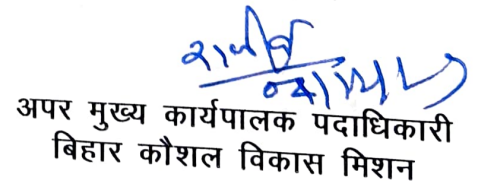 अपर मुख्य कार्यपालक पदाधिकारी
बिहार कौशल विकास मिशन